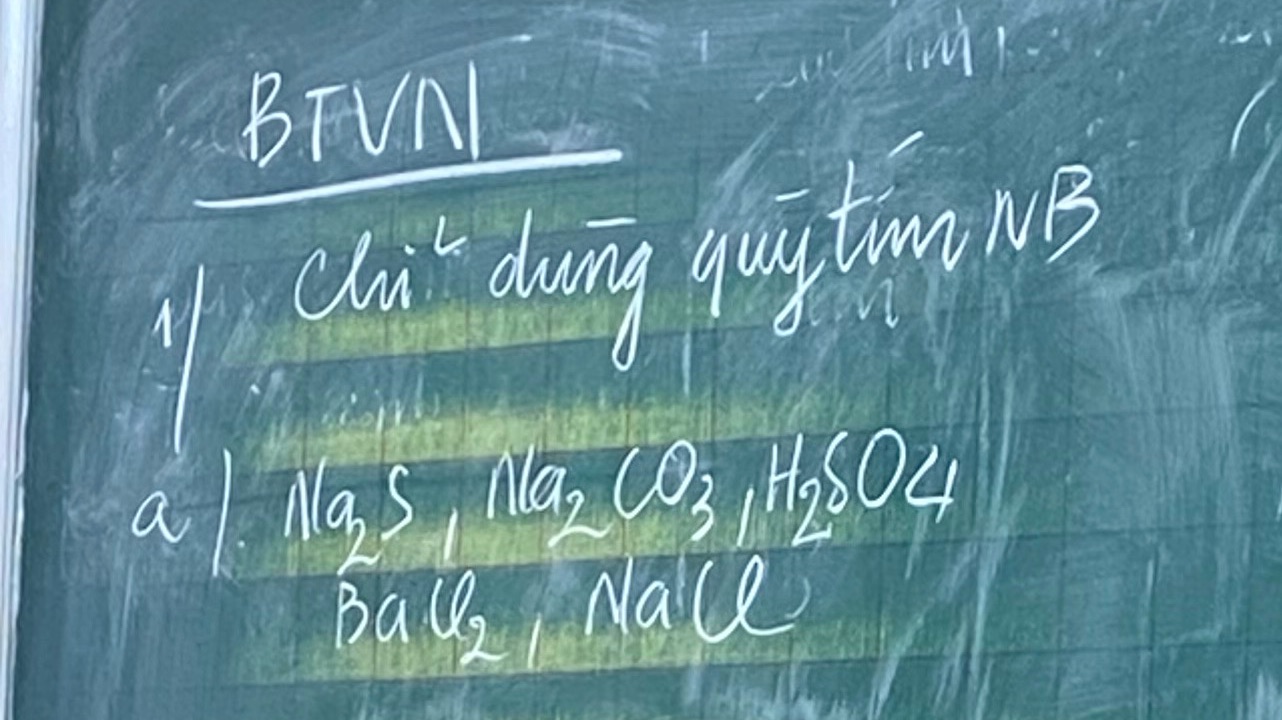 BTVN
1/ Chỉ dùng quỳ tím NB
a/. Na₂S, Na₂CO₃, H₂SO₄
BaCl₂, NaCl